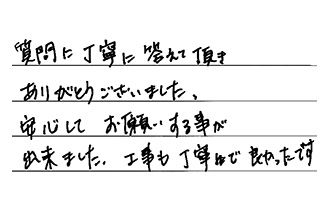 質問に丁寧に答えて頂き
ありがとうございました。
安心して お願いする事が
出来ました。工事も丁寧で良かったです